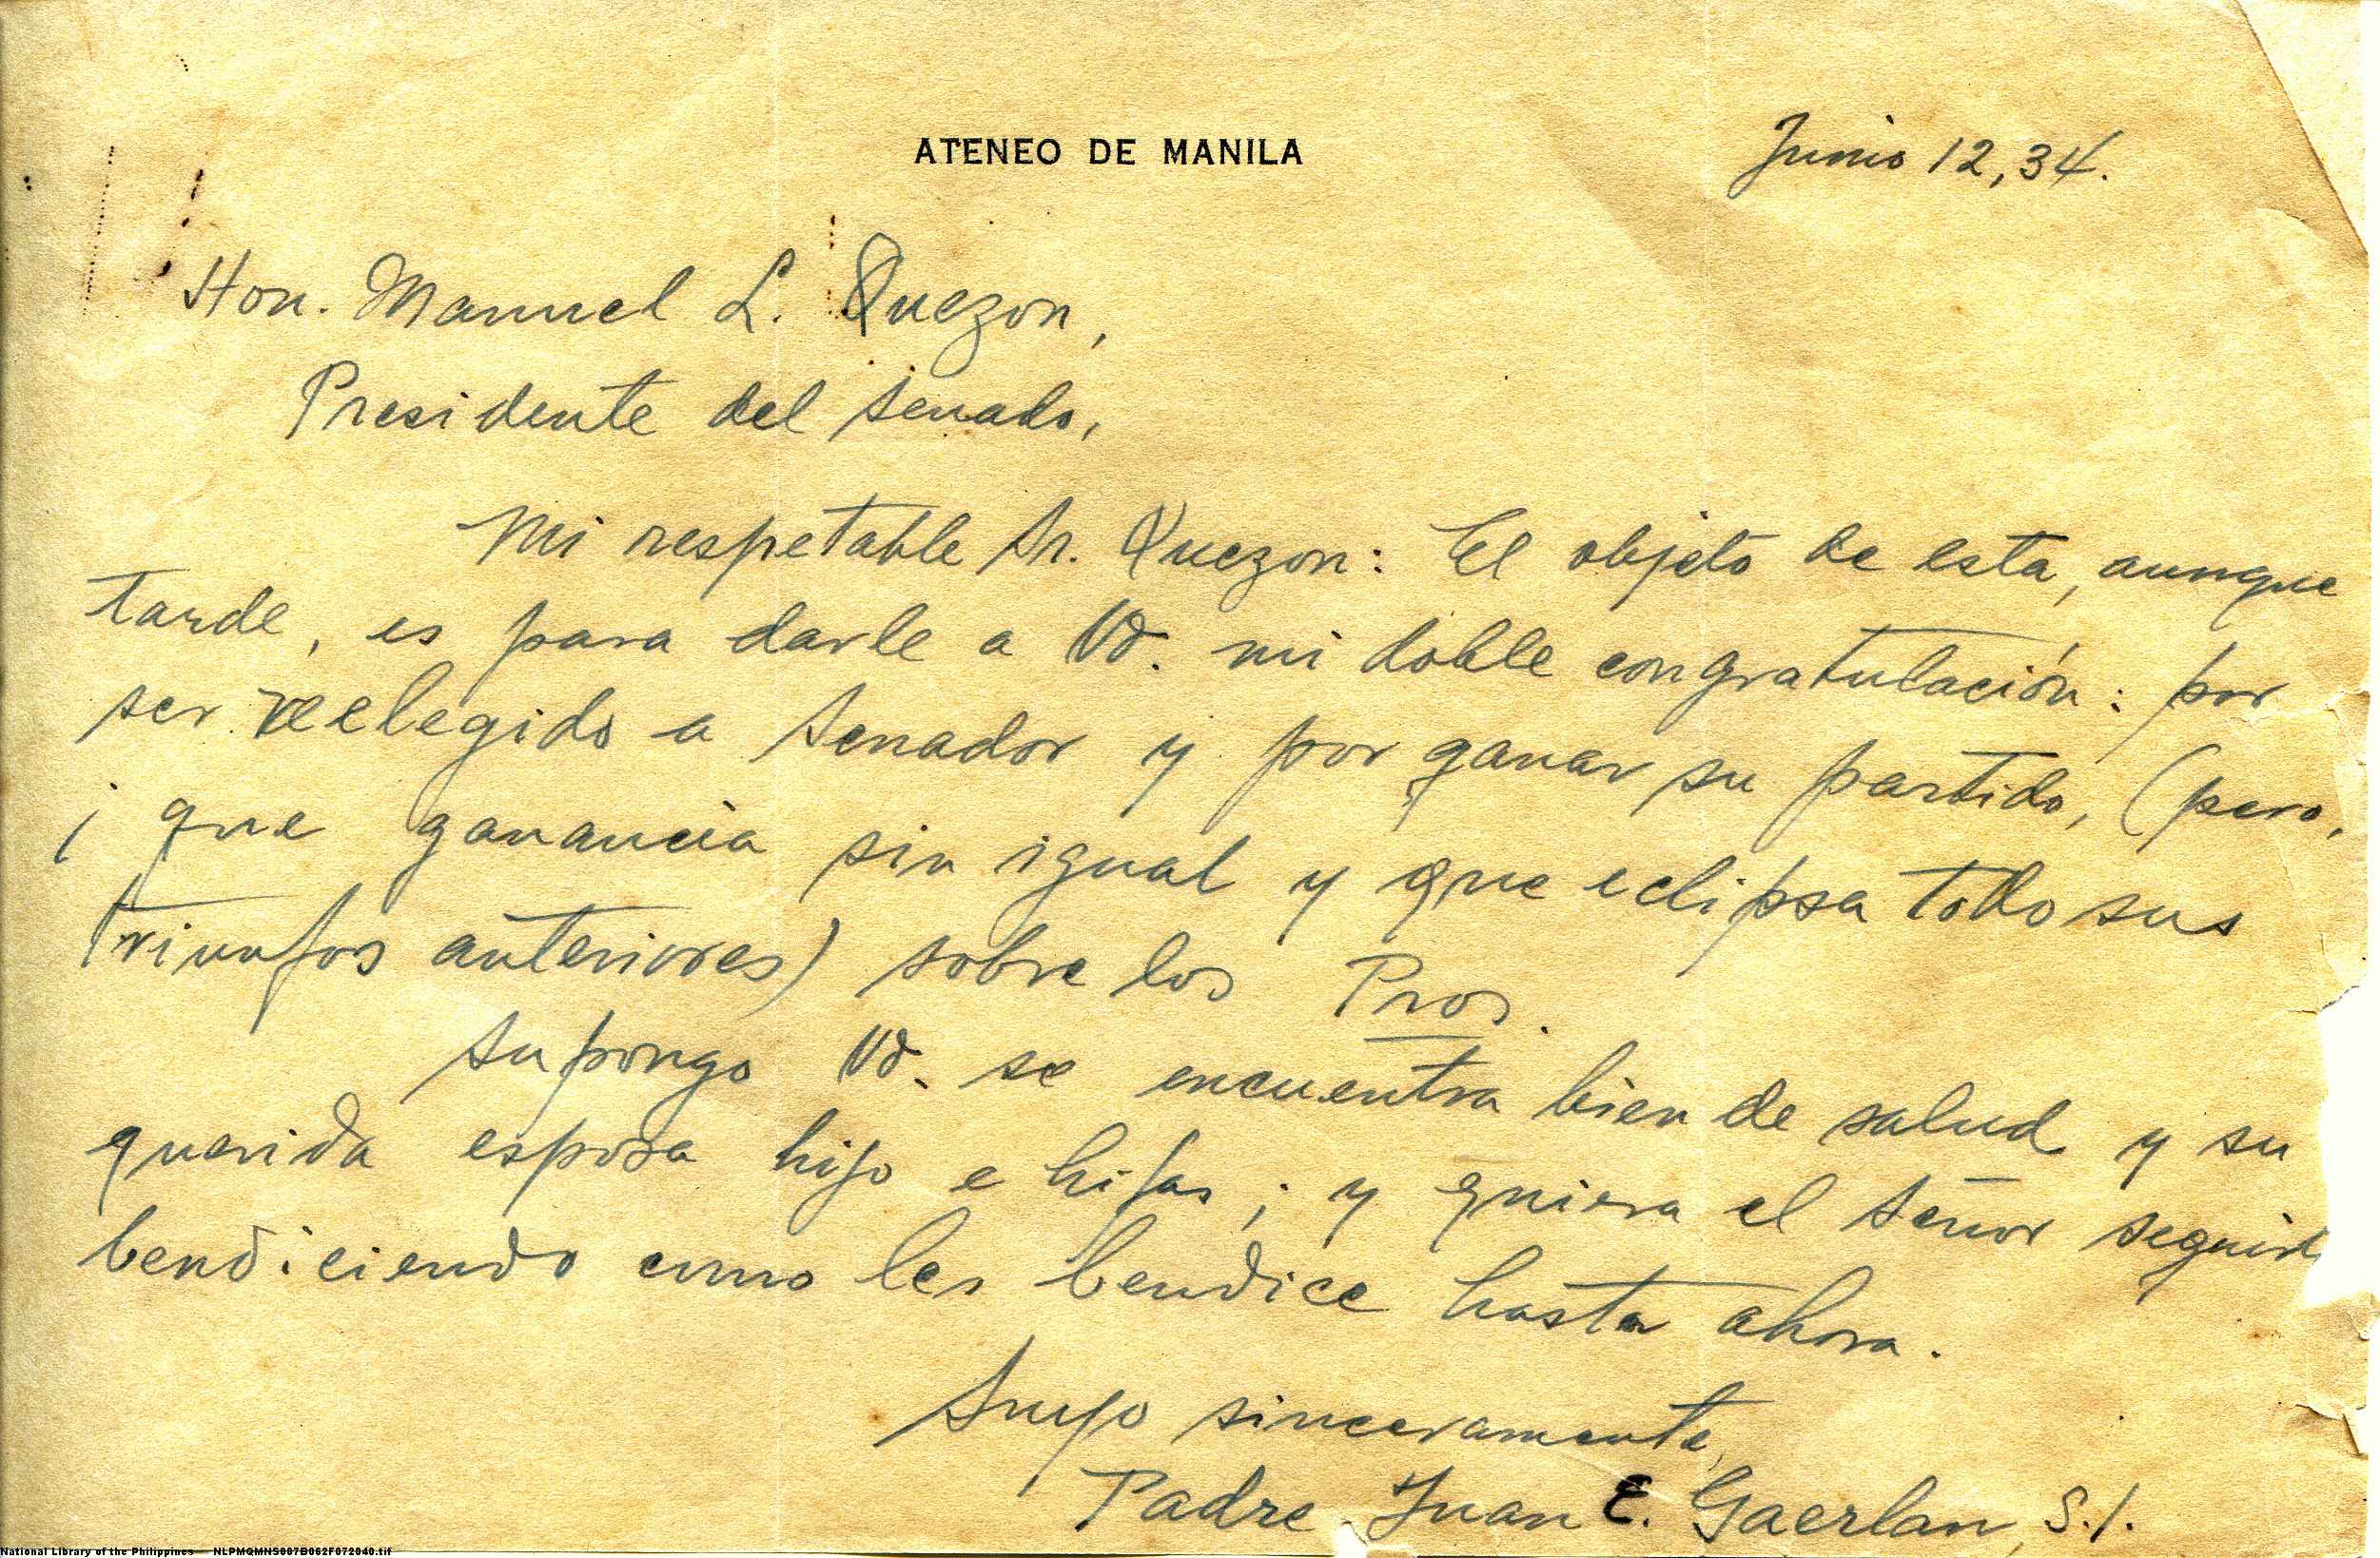 ATENEO DE MANILA
Junio 12, 34.
Hon. Manuel L. Quezon,
Presidente del Senado,
Mi respetable Sr. Quezon: El objeto de esta, aunque
tarde, es para darle a Vd. mi doble congratulación: por
ser reelegido a Senador y por ganar su partido, (pero,
¡ que ganancia sin igual y que eclipsa todo sus
triunfos anteriores) sobre los Pros.
Supongo Vd. se encuentra bien de salud y su
querida esposa hijo e hijas; y quiera el Señor seguir
bendiciendo como les bendice hasta ahora.
Suyo sinceramente,
Padre Juan E. Gaerlan, S.J.
National Library of the Philippines NLPMQMNS007B062F072040.tif